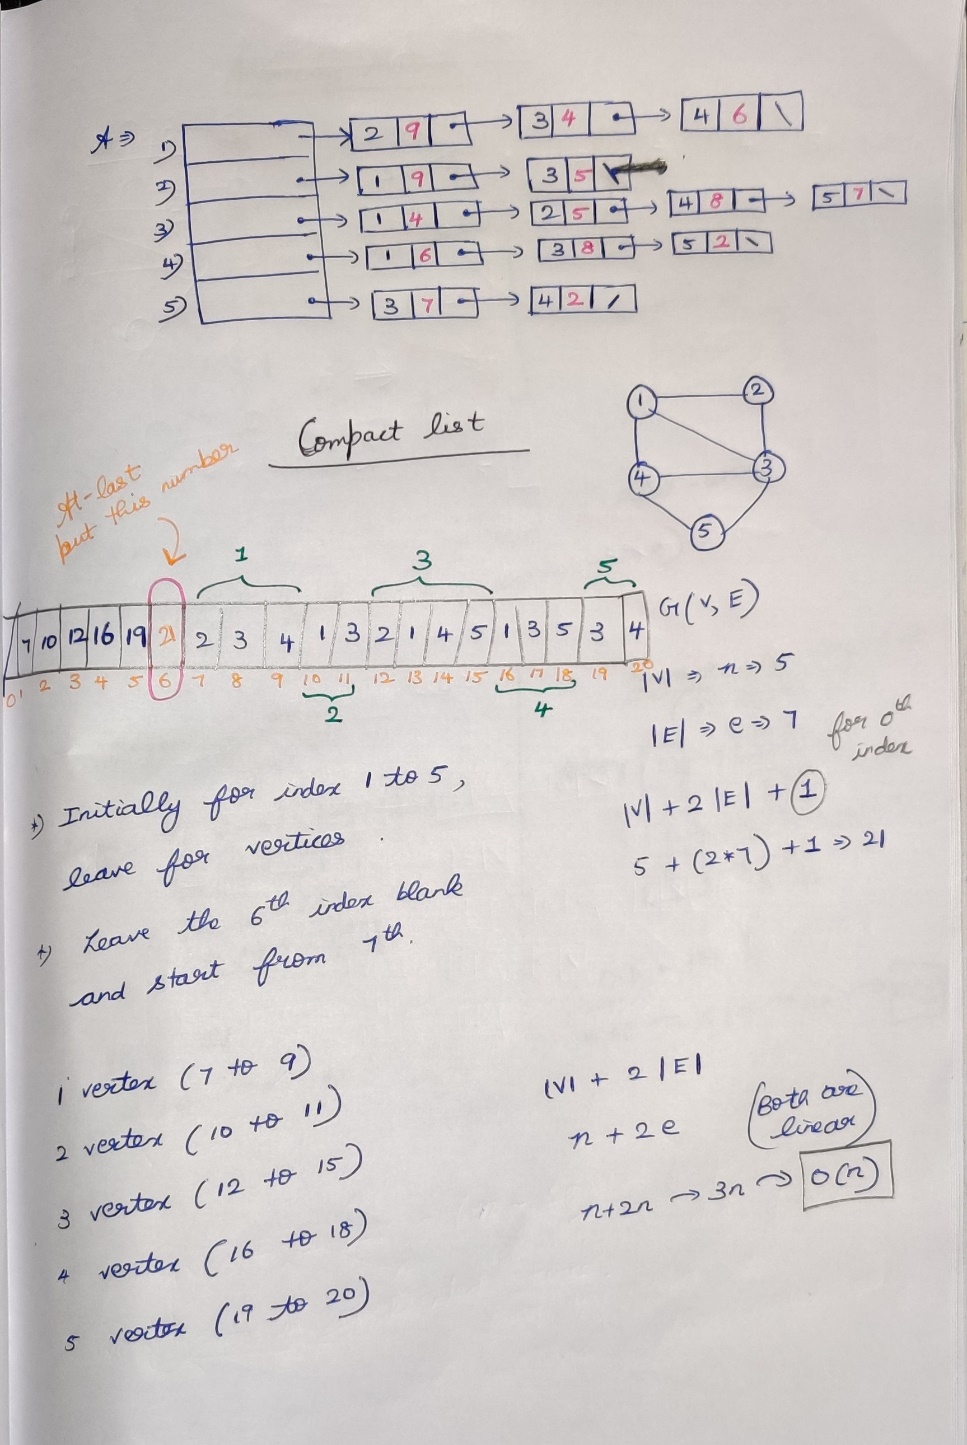 A ⇒
1) 2 9 3 4 4 6 \
2) 1 9 3 5 \
3) 1 4 2 5 4 8 5 7 \
4) 1 6 3 8 5 2 \
5) 3 7 4 2 /
Compact list
1 2
4 3
5
At-last
put this number
1 3 5
7 10 12 16 19 21 2 3 4 1 3 2 1 4 5 1 3 5 3 4
0 1 2 3 4 5 6 7 8 9 10 11 12 13 14 15 16 17 18 19 20
2 4
G(V, E)
|V| ⇒ n ⇒ 5
|E| ⇒ e ⇒ 7
for 0th
index
|V| + 2|E| + 1
5 + (2*7) + 1 ⇒ 21
*) Initially for index 1 to 5,
leave for vertices.
*) Leave the 6th index blank
and start from 7th.
1 vertex (7 to 9)
2 vertex (10 to 11)
3 vertex (12 to 15)
4 vertex (16 to 18)
5 vertex (19 to 20)
|V| + 2|E|
n + 2e
(Both are
linear)
n+2n → 3n → O(n)